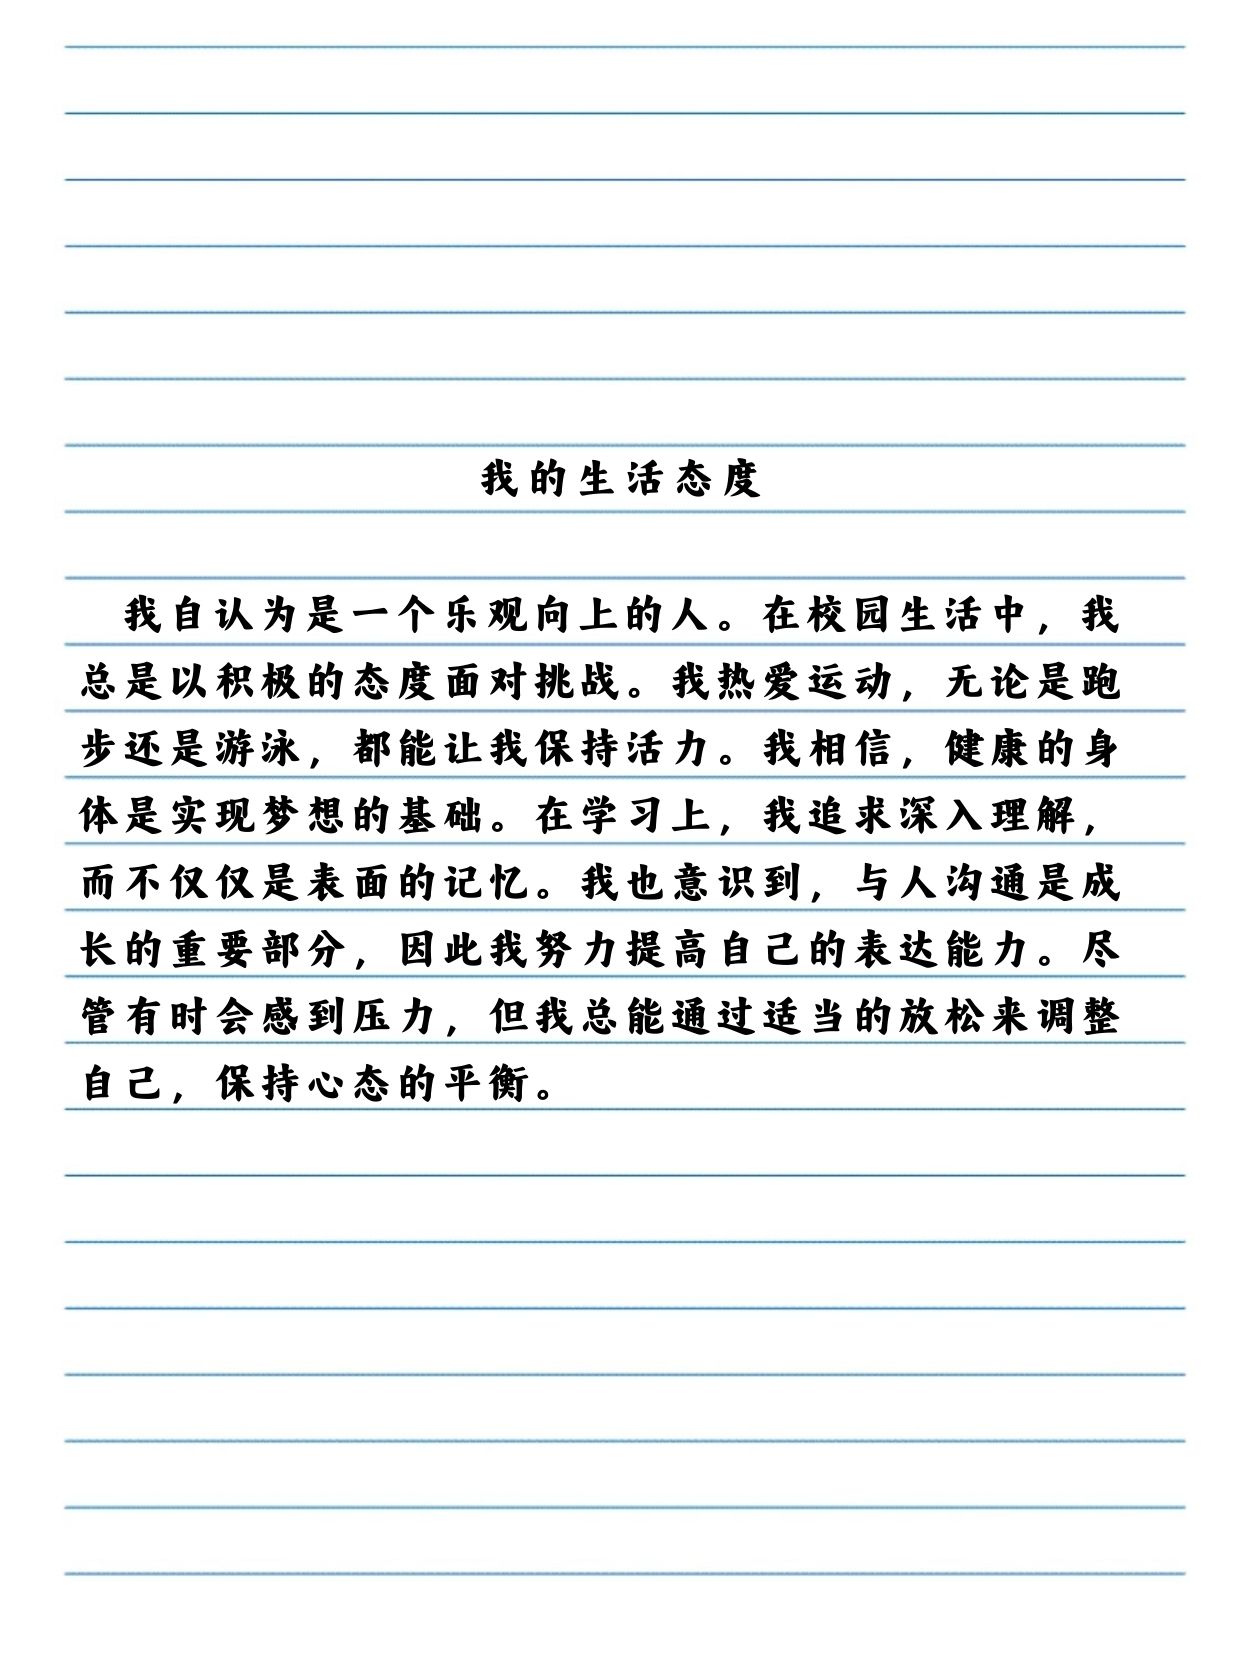 我的生活态度
我自认为是一个乐观向上的人。在校园生活中，我
总是以积极的态度面对挑战。我热爱运动，无论是跑
步还是游泳，都能让我保持活力。我相信，健康的身
体是实现梦想的基础。在学习上，我追求深入理解，
而不仅仅是表面的记忆。我也意识到，与人沟通是成
长的重要部分，因此我努力提高自己的表达能力。尽
管有时会感到压力，但我总能通过适当的放松来调整
自己，保持心态的平衡。